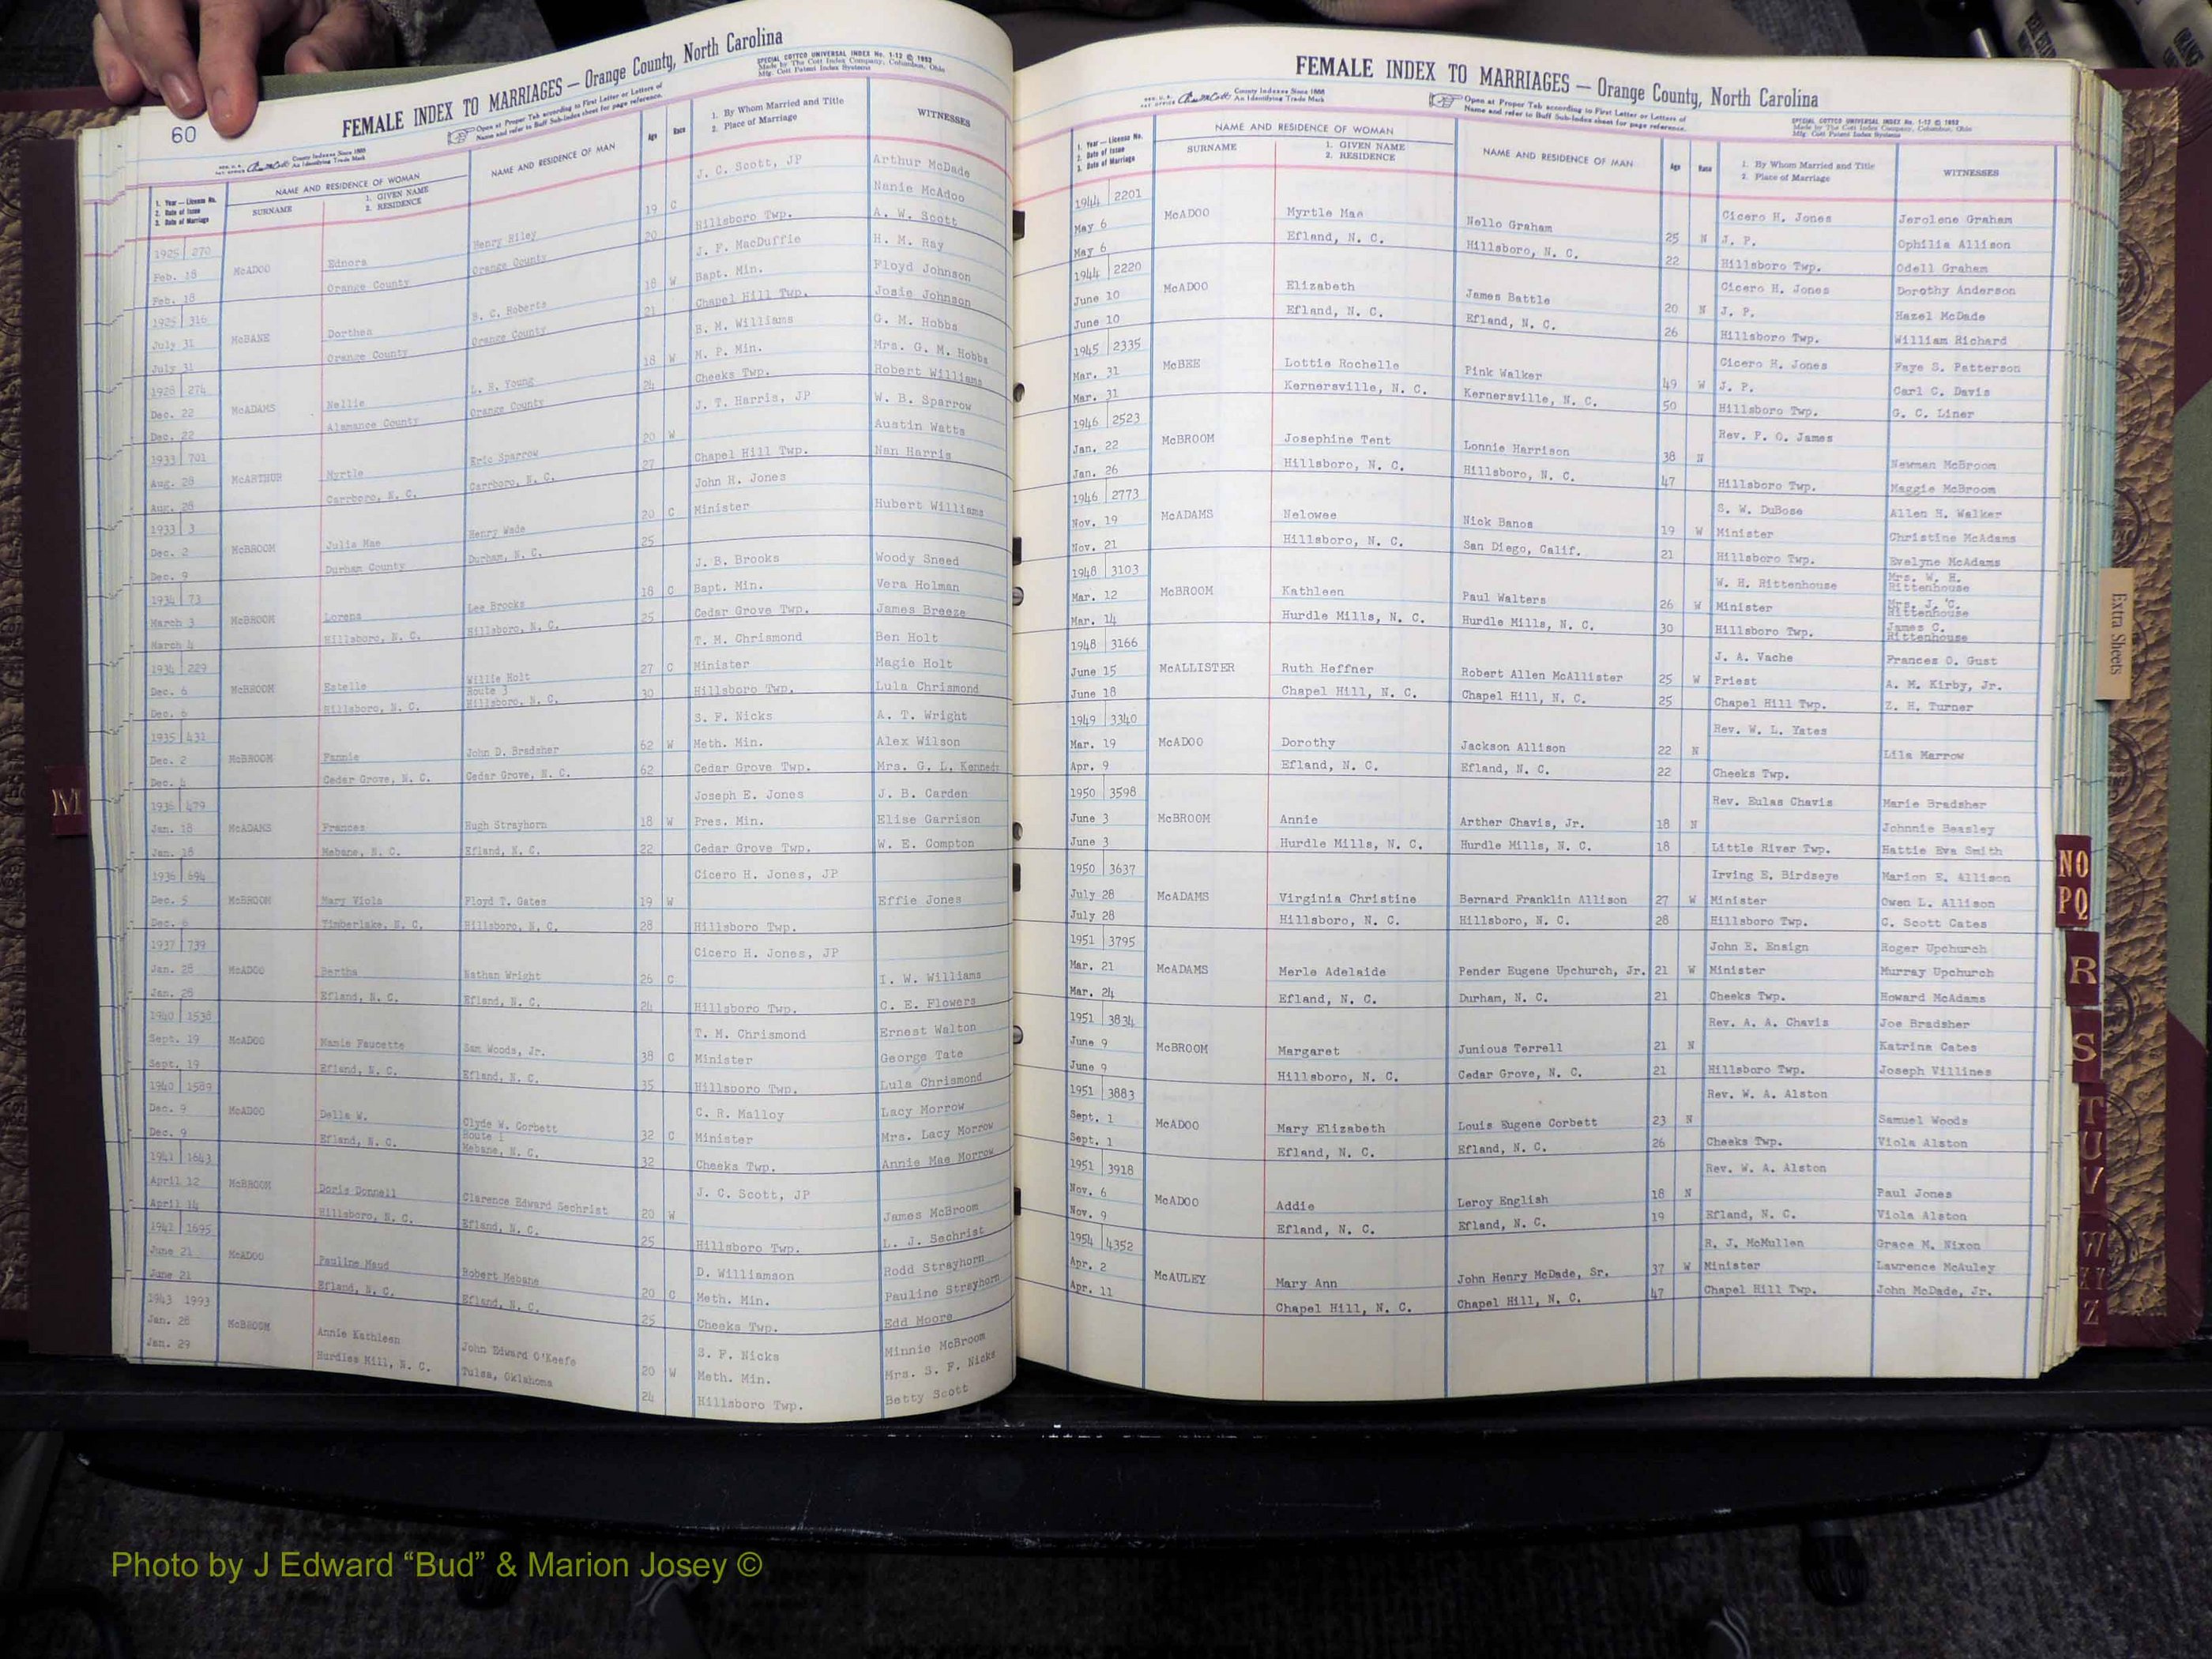 60
FEMALE INDEX TO MARRIAGES — Orange County, North Carolina
SPECIAL COTTCO UNIVERSAL INDEX No. 1-12 © 1952
Made by The Cott Index Company, Columbus, Ohio
Mfg. Cott Patent Index Systems
County Indexes Since 1888
An Identifying Trade Mark
Open at Proper Tab according to First Letter or Letters of
Name and refer to Buff Sub-Index sheet for page reference.
1. Year — License No.
2. Date of Issue
3. Date of Marriage
NAME AND RESIDENCE OF WOMAN
SURNAME
1. GIVEN NAME
2. RESIDENCE
NAME AND RESIDENCE OF MAN
Age
Race
1. By Whom Married and Title
2. Place of Marriage
WITNESSES
1925 270 J. C. Scott, JP Arthur McDade
Feb. 18 McADOO Ednora Henry Riley 19 C Nanie McAdoo
Feb. 18 Orange County Orange County 20 Hillsboro Twp. A. W. Scott
1925 316 J. F. MacDuffie H. M. Ray
July 31 McBANE Dorthea B. C. Roberts 18 W Bapt. Min. Floyd Johnson
July 31 Orange County Orange County 21 Chapel Hill Twp. Josie Johnson
1928 274 B. M. Williams G. M. Hobbs
Dec. 22 McADAMS Nellie L. R. Young 18 W M. P. Min. Mrs. G. M. Hobbs
Dec. 22 Alamance County Orange County 24 Cheeks Twp. Robert Williams
1933 701 J. T. Harris, JP W. B. Sparrow
Aug. 28 McARTHUR Myrtle Eric Sparrow 20 W Austin Watts
Aug. 28 Carrboro, N. C. Carrboro, N. C. 27 Chapel Hill Twp. Nan Harris
1933 3 John H. Jones
Dec. 2 McBROOM Julia Mae Henry Wade 20 C Minister Hubert Williams
Dec. 9 Durham County Durham, N. C. 25
1934 73 J. B. Brooks Woody Sneed
March 3 McBROOM Lorena Lee Brooks 18 C Bapt. Min. Vera Holman
March 4 Hillsboro, N. C. Hillsboro, N. C. 25 Cedar Grove Twp. James Breeze
1934 229 T. M. Chrismond Ben Holt
Dec. 6 McBROOM Estelle Willie Holt 27 C Minister Magie Holt
Route 3
Dec. 6 Hillsboro, N. C. Hillsboro, N. C. 30 Hillsboro Twp. Lula Chrismond
1935 431 S. F. Nicks A. T. Wright
Dec. 2 McBROOM Fannie John D. Bradsher 62 W Meth. Min. Alex Wilson
Dec. 4 Cedar Grove, N. C. Cedar Grove, N. C. 62 Cedar Grove Twp. Mrs. G. L. Kennedy
1936 479 Joseph E. Jones J. B. Carden
Jan. 18 McADAMS Frances Hugh Strayhorn 18 W Pres. Min. Elise Garrison
Jan. 18 Mebane, N. C. Efland, N. C. 22 Cedar Grove Twp. W. E. Compton
1936 694 Cicero H. Jones, JP
Dec. 5 McBROOM Mary Viola Floyd T. Gates 19 W Effie Jones
Dec. 6 Timberlake, N. C. Hillsboro, N. C. 28 Hillsboro Twp.
1937 739 Cicero H. Jones, JP
Jan. 28 McADOO Bertha Nathan Wright 26 C I. W. Williams
Jan. 28 Efland, N. C. Efland, N. C. 24 Hillsboro Twp. C. E. Flowers
1940 1538 T. M. Chrismond Ernest Walton
Sept. 19 McADOO Mamie Faucette Sam Woods, Jr. 38 C Minister George Tate
Sept. 19 Efland, N. C. Efland, N. C. 35 Hillsboro Twp. Lula Chrismond
1940 1589 C. R. Malloy Lacy Morrow
Dec. 9 McADOO Della W. Clyde W. Corbett 32 C Minister Mrs. Lacy Morrow
Route 1
Dec. 9 Efland, N. C. Mebane, N. C. 32 Cheeks Twp. Annie Mae Morrow
1941 1643 J. C. Scott, JP
April 12 McBROOM Doris Donnell Clarence Edward Sechrist 20 W James McBroom
April 14 Hillsboro, N. C. Efland, N. C. 25 Hillsboro Twp. L. J. Sechrist
1941 1695 D. Williamson Rodd Strayhorn
June 21 McADOO Pauline Maud Robert Mebane 20 C Meth. Min. Pauline Strayhorn
June 21 Efland, N. C. Efland, N. C. 25 Cheeks Twp. Edd Moore
1943 1993 S. F. Nicks Minnie McBroom
Jan. 28 McBROOM Annie Kathleen John Edward O'Keefe 20 W Meth. Min. Mrs. S. F. Nicks
Jan. 29 Hurdles Mill, N. C. Tulsa, Oklahoma 24 Hillsboro Twp. Betty Scott
M
FEMALE INDEX TO MARRIAGES — Orange County, North Carolina
County Indexes Since 1888
An Identifying Trade Mark
Open at Proper Tab according to First Letter or Letters of
Name and refer to Buff Sub-Index sheet for page reference.
SPECIAL COTTCO UNIVERSAL INDEX No. 1-12 © 1952
Made by The Cott Index Company, Columbus, Ohio
Mfg. Cott Patent Index Systems
1. Year — License No.
2. Date of Issue
3. Date of Marriage
NAME AND RESIDENCE OF WOMAN
SURNAME
1. GIVEN NAME
2. RESIDENCE
NAME AND RESIDENCE OF MAN
Age
Race
1. By Whom Married and Title
2. Place of Marriage
WITNESSES
1944 2201 Cicero H. Jones Jerolene Graham
May 6 McADOO Myrtle Mae Nello Graham 25 N J. P. Ophilia Allison
May 6 Efland, N. C. Hillsboro, N. C. 22 Hillsboro Twp. Odell Graham
1944 2220 Cicero H. Jones Dorothy Anderson
June 10 McADOO Elizabeth James Battle 20 N J. P. Hazel McDade
June 10 Efland, N. C. Efland, N. C. 26 Hillsboro Twp. William Richard
1945 2335 Cicero H. Jones Faye S. Patterson
Mar. 31 McBEE Lottie Rochelle Pink Walker 49 W J. P. Carl C. Davis
Mar. 31 Kernersville, N. C. Kernersville, N. C. 50 Hillsboro Twp. G. C. Liner
1946 2523 Rev. P. O. James
Jan. 22 McBROOM Josephine Tent Lonnie Harrison 38 N Newman McBroom
Jan. 26 Hillsboro, N. C. Hillsboro, N. C. 47 Hillsboro Twp. Maggie McBroom
1946 2773 S. W. DuBose Allen H. Walker
Nov. 19 McADAMS Nelowee Nick Banos 19 W Minister Christine McAdams
Nov. 21 Hillsboro, N. C. San Diego, Calif. 21 Hillsboro Twp. Evelyne McAdams
1948 3103 W. H. Rittenhouse Mrs. W. H. Rittenhouse
Mar. 12 McBROOM Kathleen Paul Walters 26 W Minister Mrs. J. C. Rittenhouse
Mar. 14 Hurdle Mills, N. C. Hurdle Mills, N. C. 30 Hillsboro Twp. James C. Rittenhouse
1948 3166 J. A. Vache Frances O. Gust
June 15 McALLISTER Ruth Heffner Robert Allen McAllister 25 W Priest A. M. Kirby, Jr.
June 18 Chapel Hill, N. C. Chapel Hill, N. C. 25 Chapel Hill Twp. Z. H. Turner
1949 3340 Rev. W. L. Yates
Mar. 19 McADOO Dorothy Jackson Allison 22 N Lila Marrow
Apr. 9 Efland, N. C. Efland, N. C. 22 Cheeks Twp.
1950 3598 Rev. Eulas Chavis Marie Bradsher
June 3 McBROOM Annie Arther Chavis, Jr. 18 N Johnnie Beasley
June 3 Hurdle Mills, N. C. Hurdle Mills, N. C. 18 Little River Twp. Hattie Eva Smith
1950 3637 Irving E. Birdseye Marion E. Allison
July 28 McADAMS Virginia Christine Bernard Franklin Allison 27 W Minister Owen L. Allison
July 28 Hillsboro, N. C. Hillsboro, N. C. 28 Hillsboro Twp. C. Scott Cates
1951 3795 John E. Ensign Roger Upchurch
Mar. 21 McADAMS Merle Adelaide Pender Eugene Upchurch, Jr. 21 W Minister Murray Upchurch
Mar. 24 Efland, N. C. Durham, N. C. 21 Cheeks Twp. Howard McAdams
1951 3834 Rev. A. A. Chavis Joe Bradsher
June 9 McBROOM Margaret Junious Terrell 21 N Katrina Cates
June 9 Hillsboro, N. C. Cedar Grove, N. C. 21 Hillsboro Twp. Joseph Villines
1951 3883 Rev. W. A. Alston
Sept. 1 McADOO Mary Elizabeth Louis Eugene Corbett 23 N Samuel Woods
Sept. 1 Efland, N. C. Efland, N. C. 26 Cheeks Twp. Viola Alston
1951 3918 Rev. W. A. Alston
Nov. 6 McADOO Addie Leroy English 18 N Paul Jones
Nov. 9 Efland, N. C. Efland, N. C. 19 Efland, N. C. Viola Alston
1954 4352 R. J. McMullen Grace M. Nixon
Apr. 2 McAULEY Mary Ann John Henry McDade, Sr. 37 W Minister Lawrence McAuley
Apr. 11 Chapel Hill, N. C. Chapel Hill, N. C. 47 Chapel Hill Twp. John McDade, Jr.
Extra Sheets
NO
PQ
R
S
T
U
V
W
Z
Photo by J Edward “Bud” & Marion Josey ©